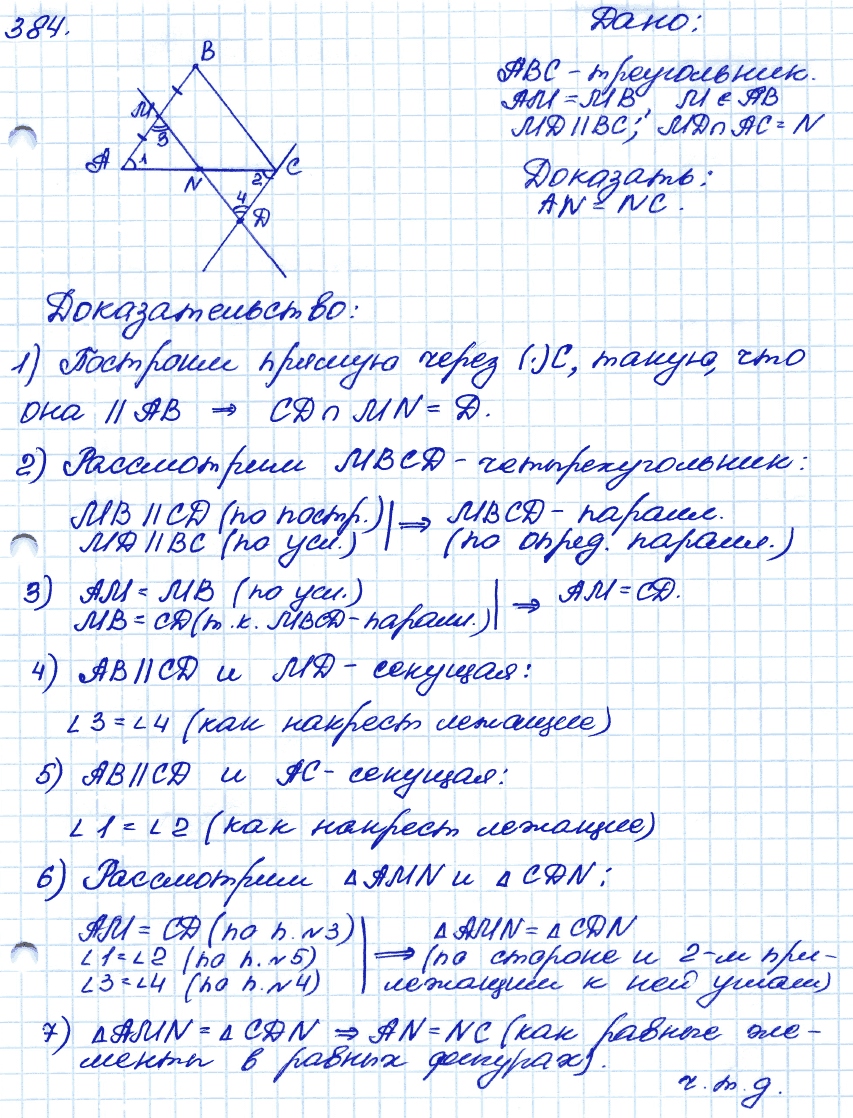 384.
Дано:
ABC - треугольник.
AM = MB, M ∈ AB
MD || BC; MD ∩ AC = N
Доказать:
AN = NC.
B
M
3
A
1
N
2
C
4
D
Доказательство:
1) Построим прямую через (·)C, такую, что
она || AB ⇒ CD ∩ MN = D.
2) Рассмотрим MBCD - четырехугольник:
MB || CD (по постр.) | ⇒ MBCD - паралл.
MD || BC (по усл.) | (по опред. паралл.)
3) AM = MB (по усл.) | ⇒ AM = CD.
MB = CD (т.к. MBCD - паралл.)
4) AB || CD и MD - секущая:
∠3 = ∠4 (как накрест лежащие)
5) AB || CD и AC - секущая:
∠1 = ∠2 (как накрест лежащие)
6) Рассмотрим △AMN и △CDN:
AM = CD (по п. №3) | △AMN = △CDN
∠1 = ∠2 (по п. №5) | ⇒ (по стороне и 2-м при-
∠3 = ∠4 (по п. №4) | лежащим к ней углам)
7) △AMN = △CDN ⇒ AN = NC (как равные эле-
менты в равных фигурах).
ч.т.д.